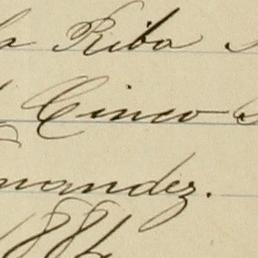 la Riba
Cinco
nandez.
1884